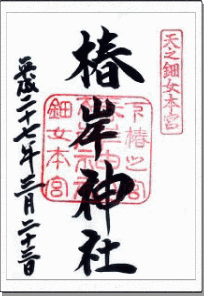 天之鈿女本宮
椿岸神社
鈿女本宮
平成二十七年三月二十三日